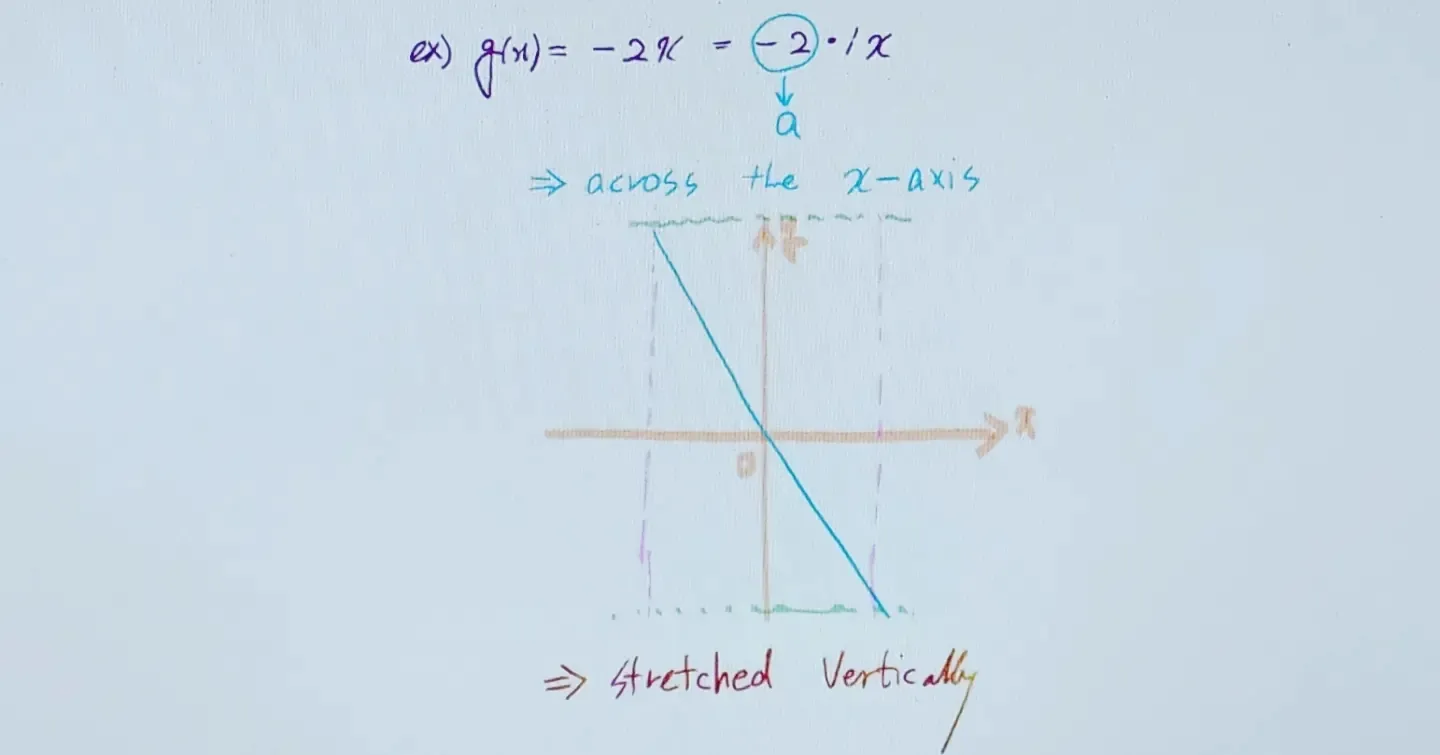 ex) g(x) = -2x = -2 · 1x
a
⇒ across the x-axis
x
0
⇒ Stretched Vertically